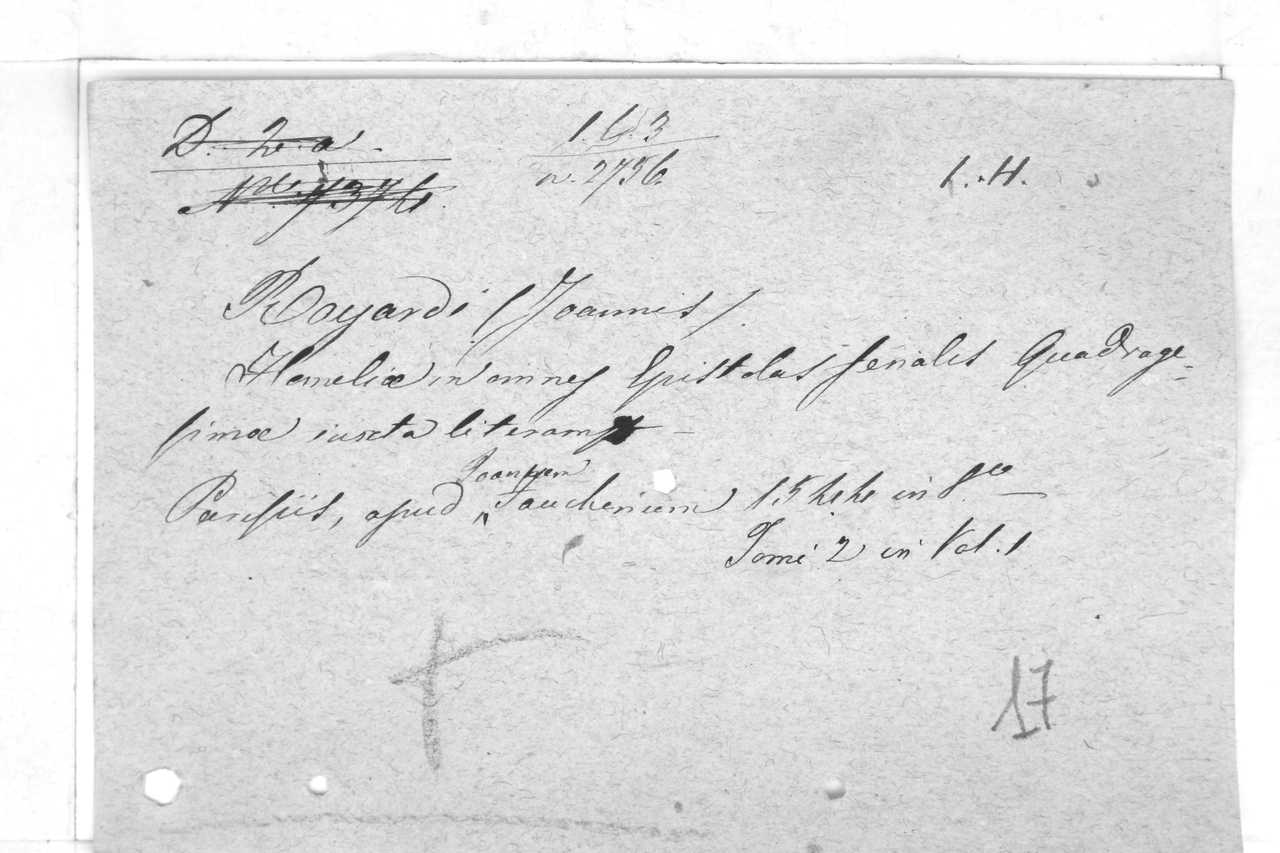 D. 2. a. 1. 6. 3
n. 2736. L. H.
Royardi (Joannis)
Homeliæ in omnes Epistolas feriales Quadrage-
simæ iuxta literam
Joannem
Parisiis, apud Foucherium 1544 in 8vo
Tomi 2 in Vol. 1
17